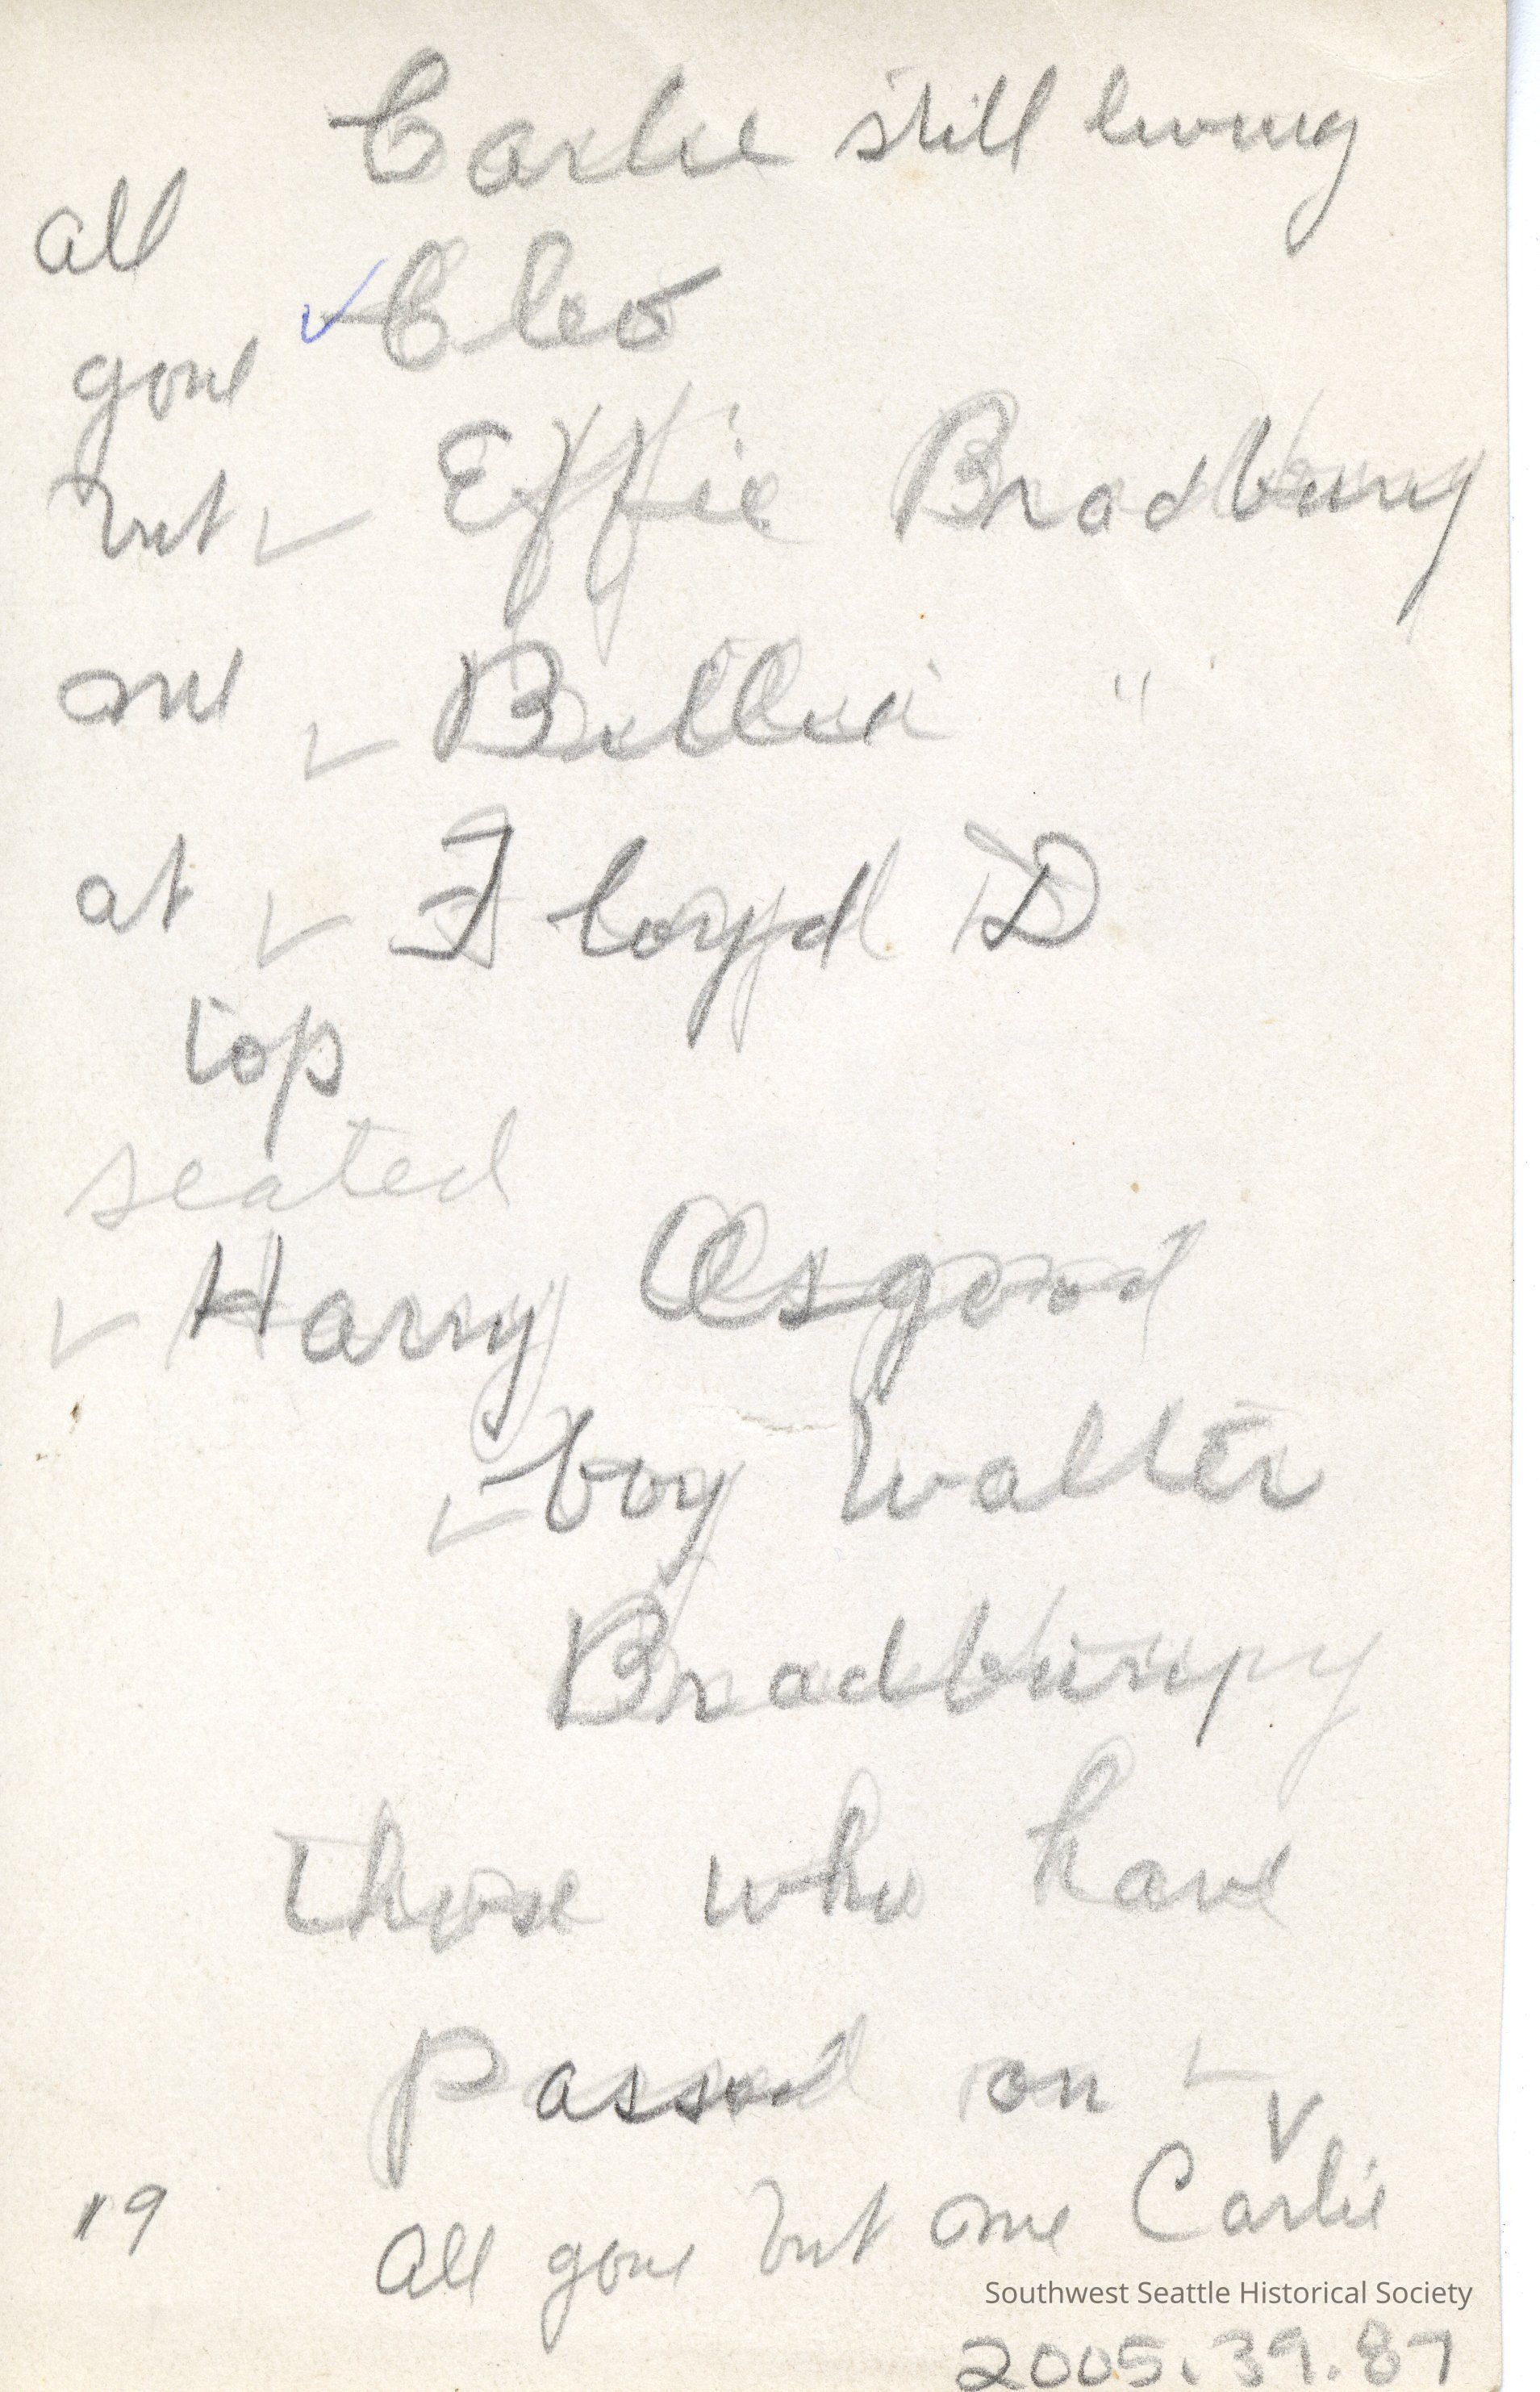 Carlie still living
all
✓ Cleo
gone
but ✓ Effie Bradbury
one ✓ Billie "
at ✓ Floyd D
top
seated
✓ Harry Osgood
✓ boy Walter
Bradbury
those who have
passed on ✓
✓
19 All gone but one Carlie
Southwest Seattle Historical Society
2005.39.87